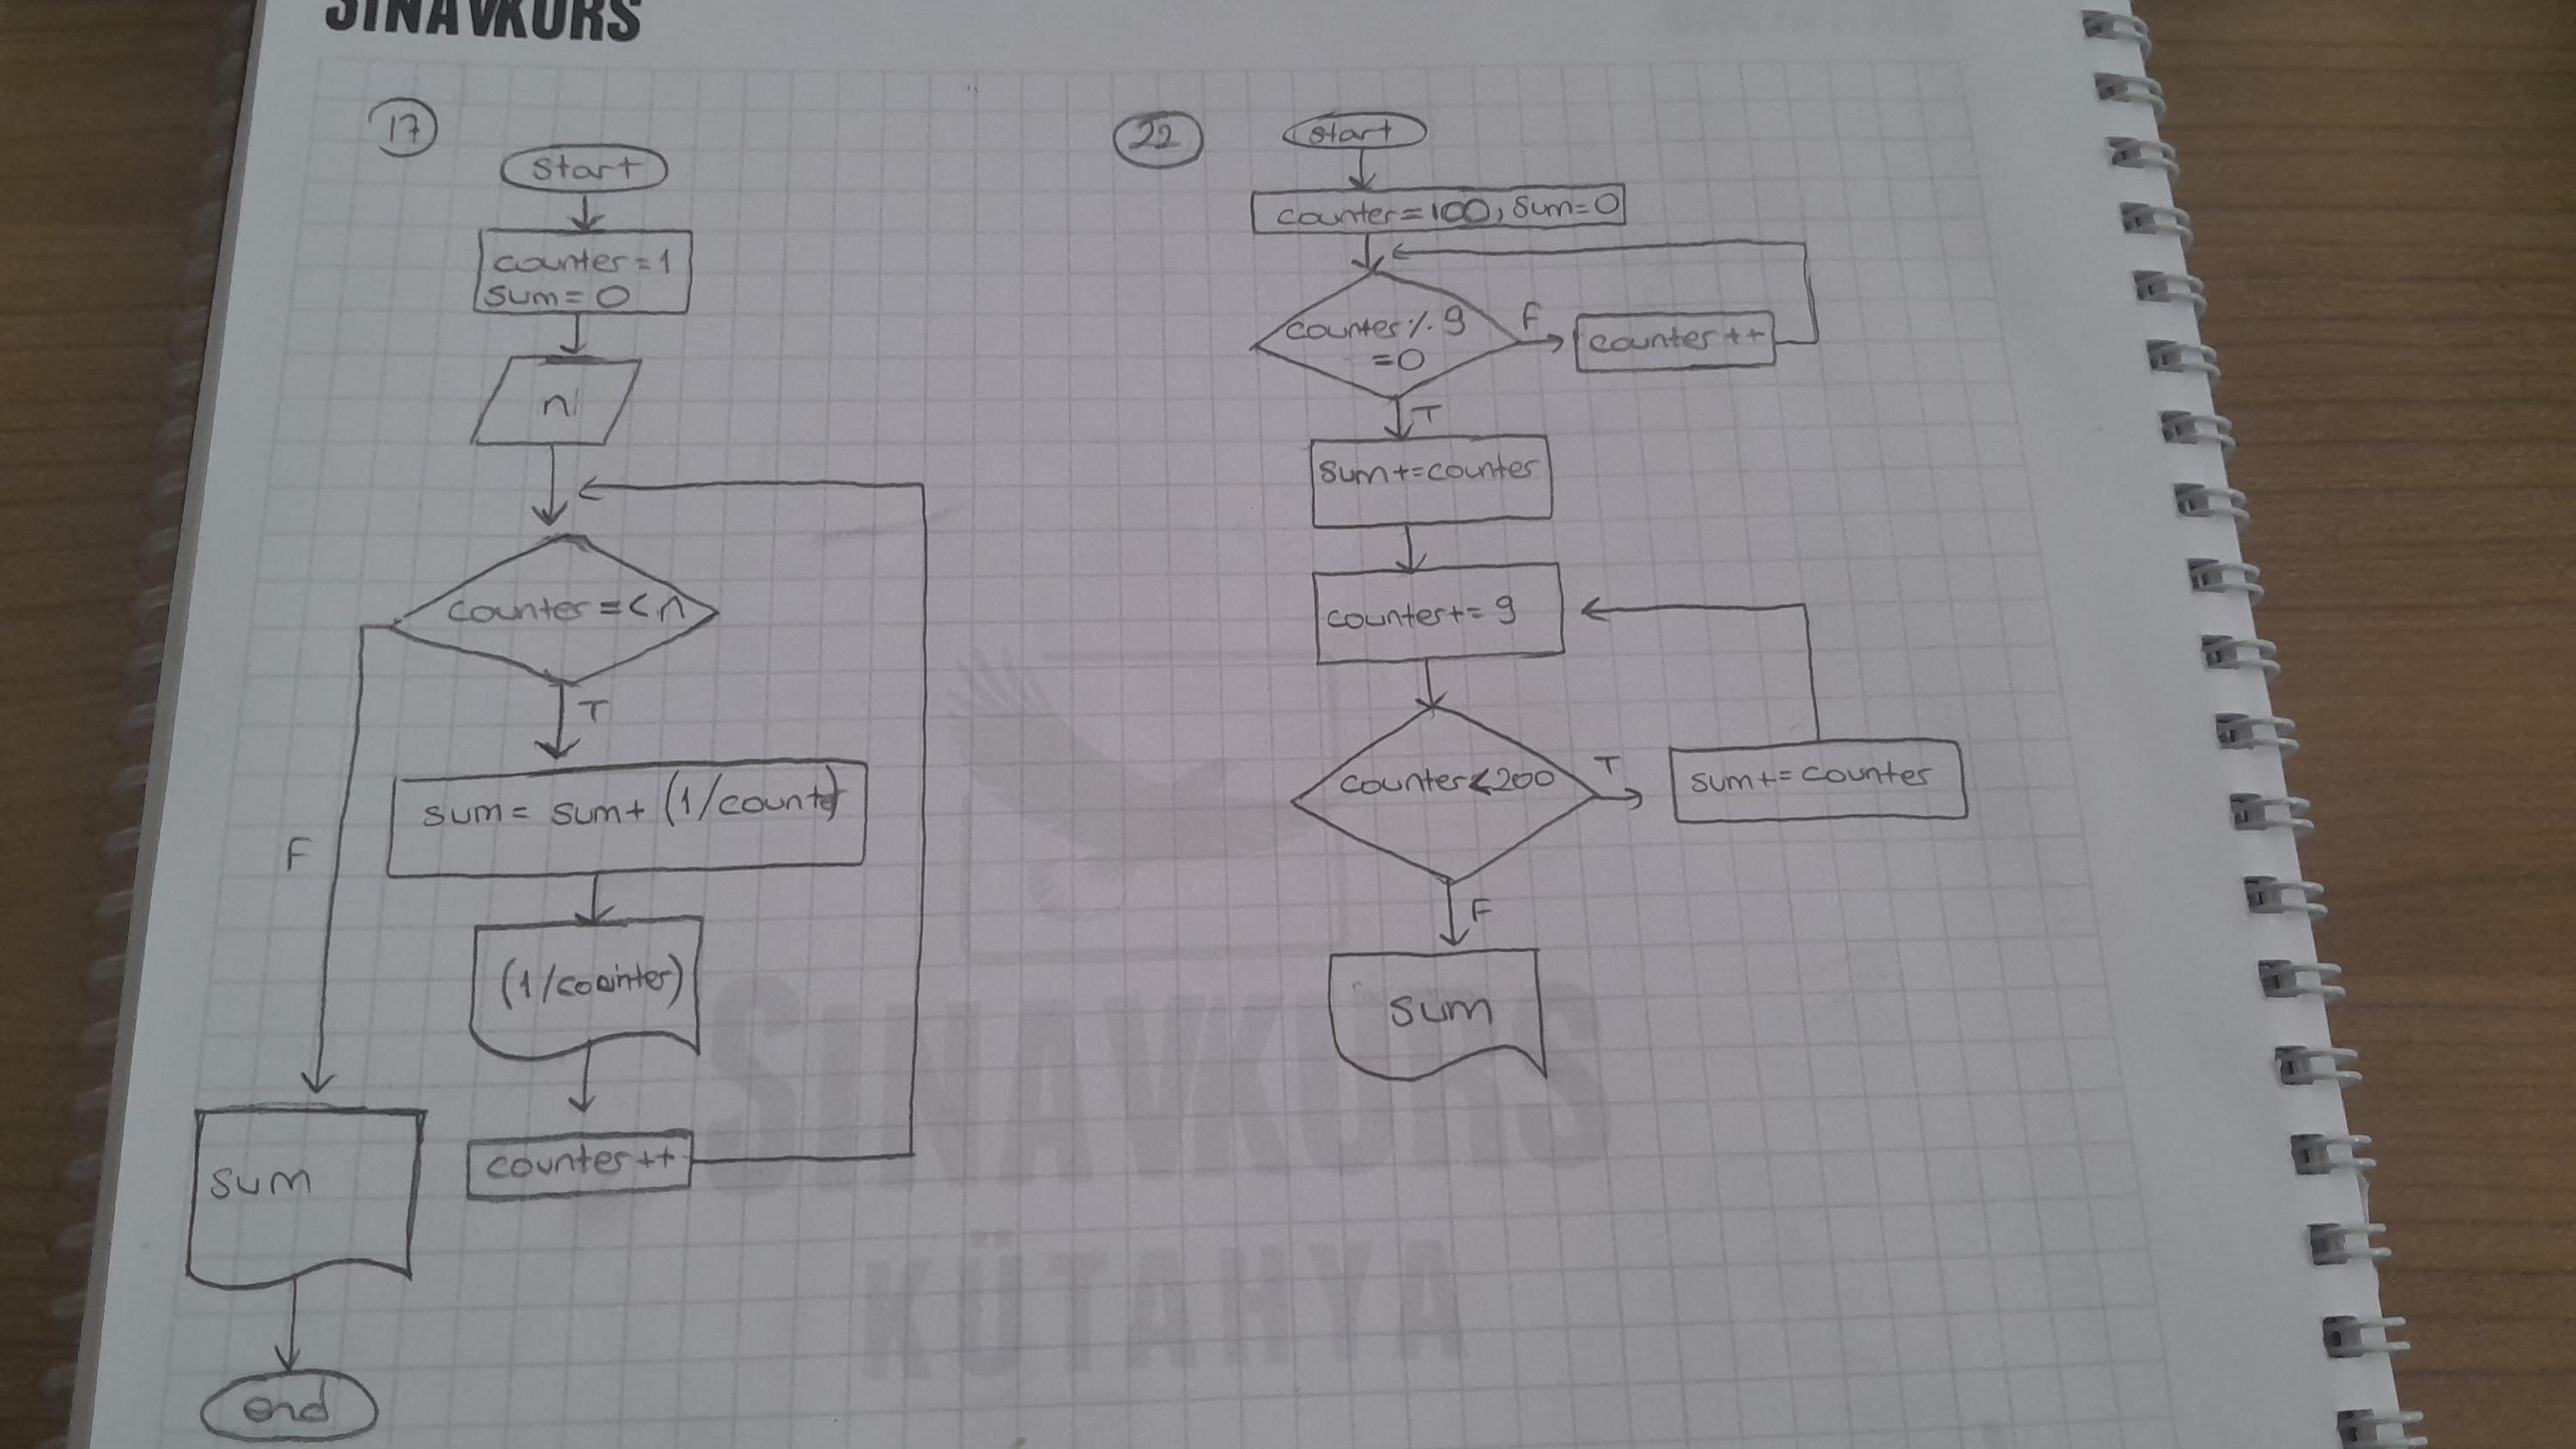 SINAVKURS
17
start
counter=1
sum=0
n
counter=<n
T
F
sum=sum+(1/counter)
(1/counter)
counter++
sum
end
22
start
counter=100, sum=0
counter % 9
=0
F
counter++
T
sum+=counter
counter+=9
counter<200
T
sum+=counter
F
sum
SINAVKURS
KÜTAHYA